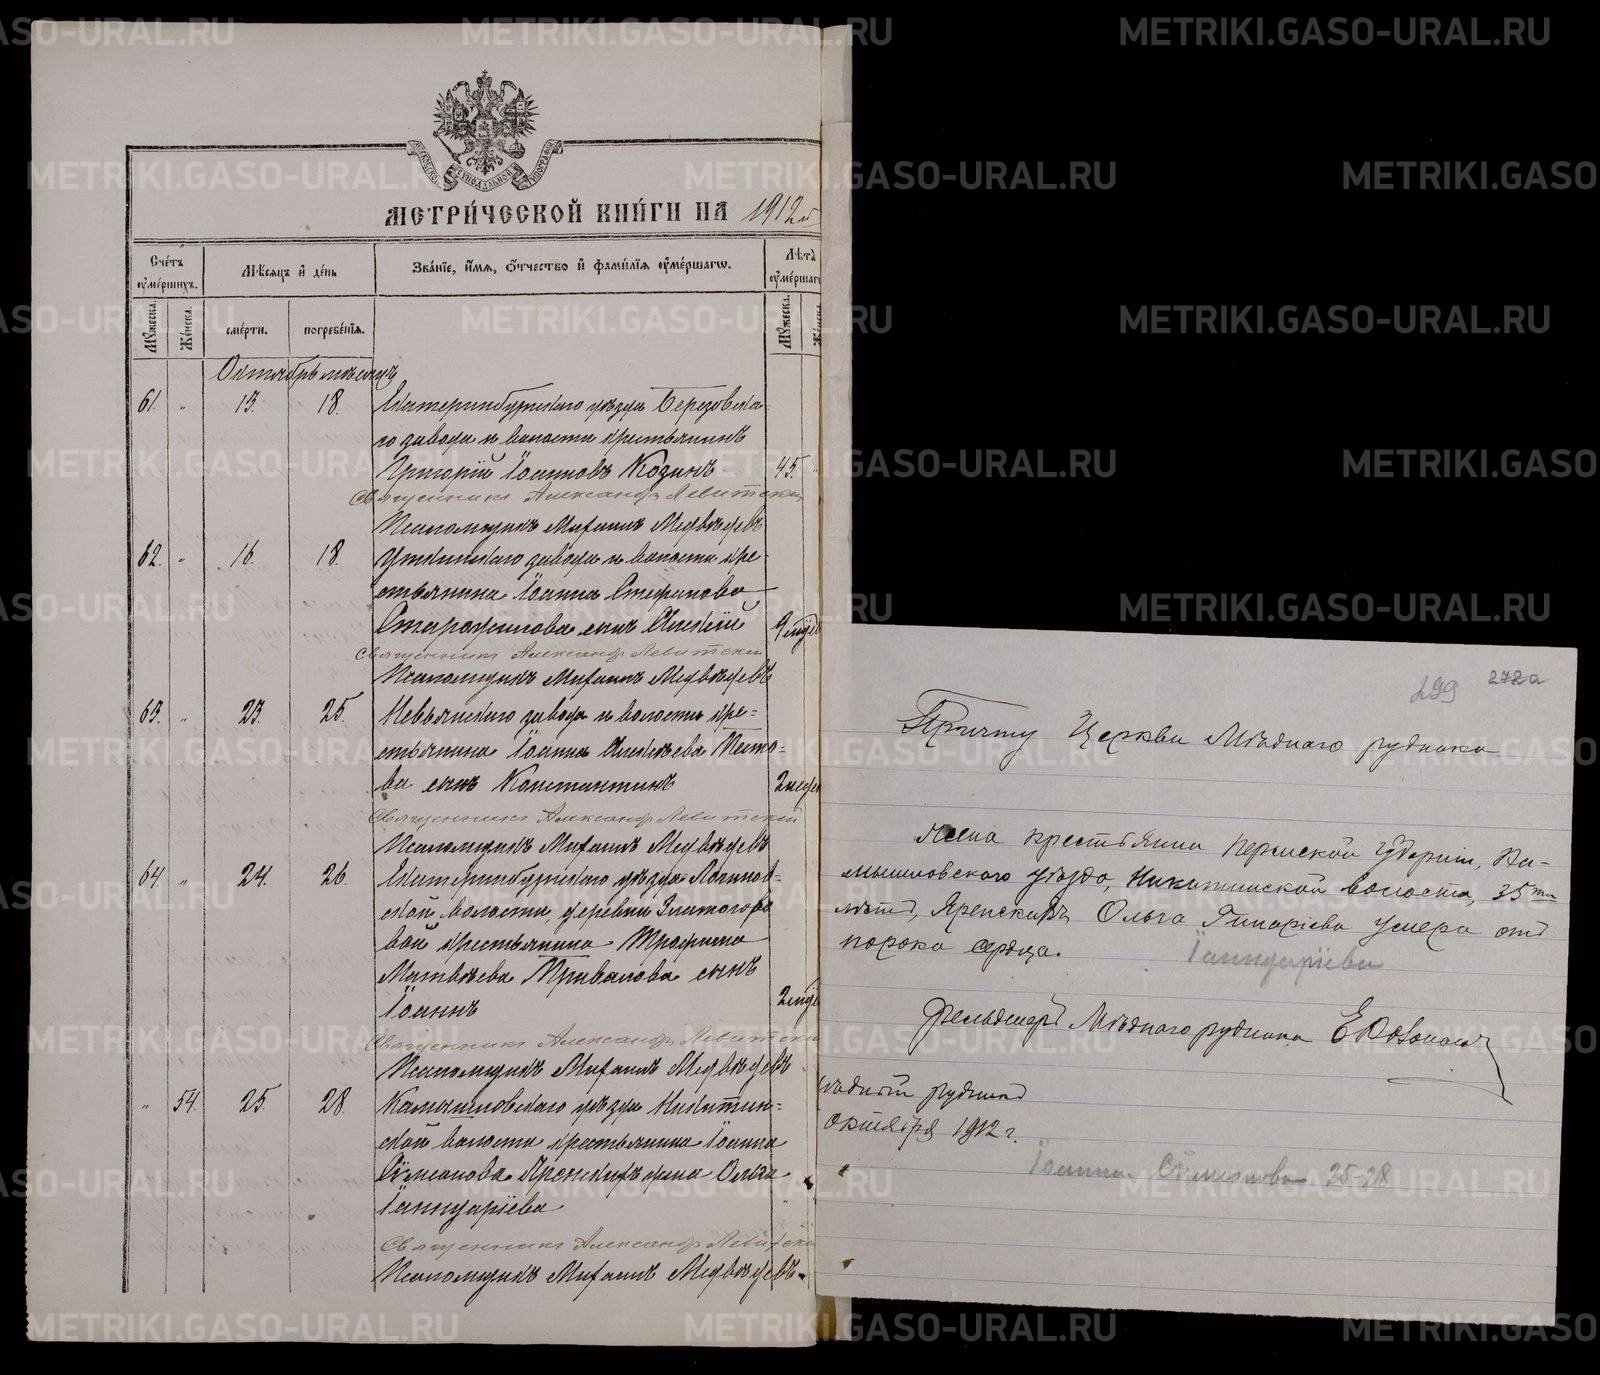 МЕТРИ́ЧЕСКОЙ КНИ́ГИ НА 1912 г
Сче́тъ оуме́ршихъ.
Мѣсяцъ и де́нь
Зва́нїе, и́мя, о́тчество и фами́лїя оуме́ршагω.
Лѣтà оуме́ршагω
Мужеска.
Женска.
сме́рти.
погребе́нїя.
Мужеска.
Октябрь мѣсяцъ
61. " 13. 18. Екатеринбургскаго уѣзда Березовска-
го завода и волости крестьянинъ
Григорій Іоанновъ Козинъ 45. "
Священникъ Александръ Левитскій
Псаломщикъ Михаилъ Медвѣдевъ
62. " 16. 18. Уткинскаго завода и волости кре-
стьянина Іоанна Стефанова
сынъ Алексій
Священникъ Александръ Левитскій
Псаломщикъ Михаилъ Медвѣдевъ
63. " 23. 25. Невьянскаго завода и волости кре-
стьянина Іоанна Алексѣева
ва сынъ Константинъ
Священникъ Александръ Левитскій
Псаломщикъ Михаилъ Медвѣдевъ
64. " 24. 26. Екатеринбургскаго уѣзда Логинов-
ской волости деревни Златогоро
вой крестьянина Трофима
Матвѣева Привалова сынъ
Іоаннъ
Священникъ Александръ Левитскій
Псаломщикъ Михаилъ Медвѣдевъ
" 54. 25. 28. Камышловскаго уѣзда Никитин-
ской волости крестьянина Іоанна
Сѵмеонова Яренскихъ жена Ольга
Іаннуаріева
Священникъ Александръ Левитскій
Псаломщикъ Михаилъ Медвѣдевъ
299 272а
Причту Церкви Мѣднаго рудника
Жена крестьянина Пермской Губерніи, Ка-
мышловского уѣзда, Никитинской волости, 35ти
лѣтъ, Яренскихъ Ольга Гинаріева умерла отъ
порока сердца.
Іаннуаріева
Фельдшеръ Мѣднаго рудника
мѣдный рудникъ
Октября 1912 г.
Іоанна Сѵмеонова 25-28
METRIKI.GASO-URAL.RU